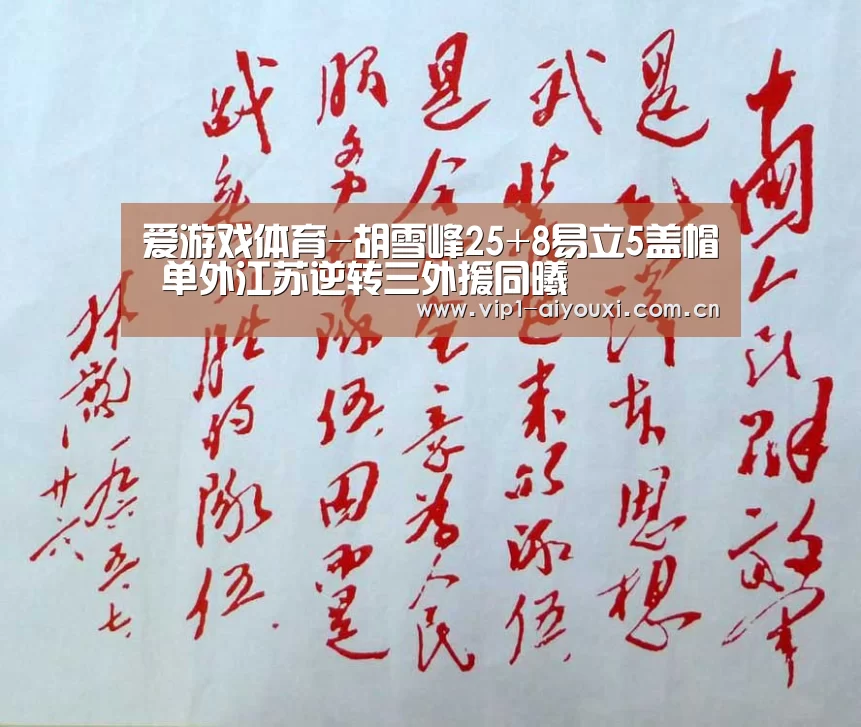 爱游戏体育-胡雪峰25+8易立5盖帽
单外江苏逆转三外援同曦
www.vip1-aiyouxi.com.cn
中國人民解放軍
是澤东思想
武装起来的隊伍.
是全全意为人民
服务隊伍.因而是
战胜的隊伍.
林彪 一九六五.七.
廿六